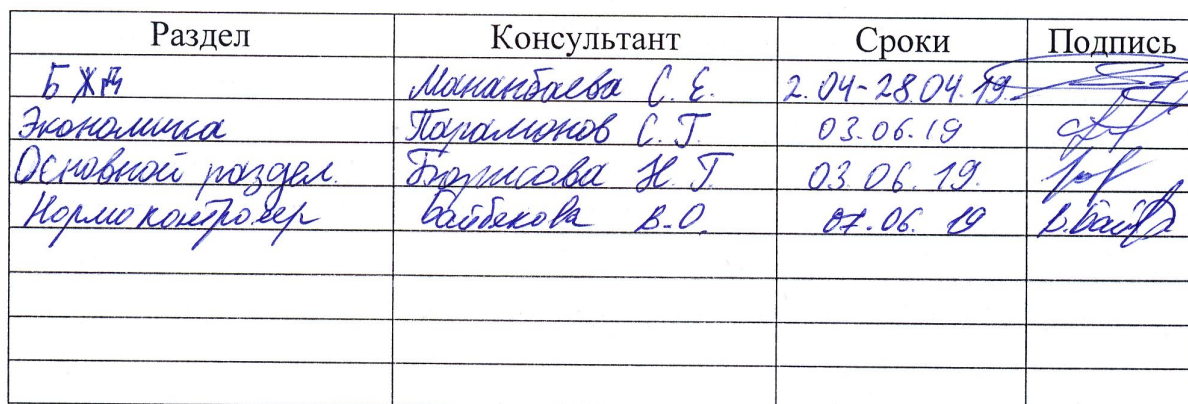 Раздел Консультант Сроки Подпись
БЖД Мананбаева С. Е. 2.04-28.04.19
Экономика Парамонов С. Г. 03.06.19
Основной раздел. Борисова Н. Г. 03.06.19.
Нормоконтролер Байбекова В.О. 07.06.19